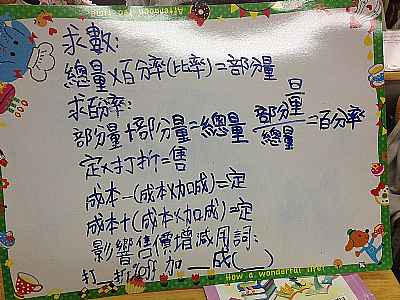 Afternoon Teatime
求數:
總量×百分率(比率)=部分量
求百分率:
部分量+部分量=總量 部分量/總量=百分率
定×打折=售
成本-(成本×加成)=定
成本+(成本×加成)=定
影響售價增減用詞:
打__折 加__成(  )
How a wonderful life!